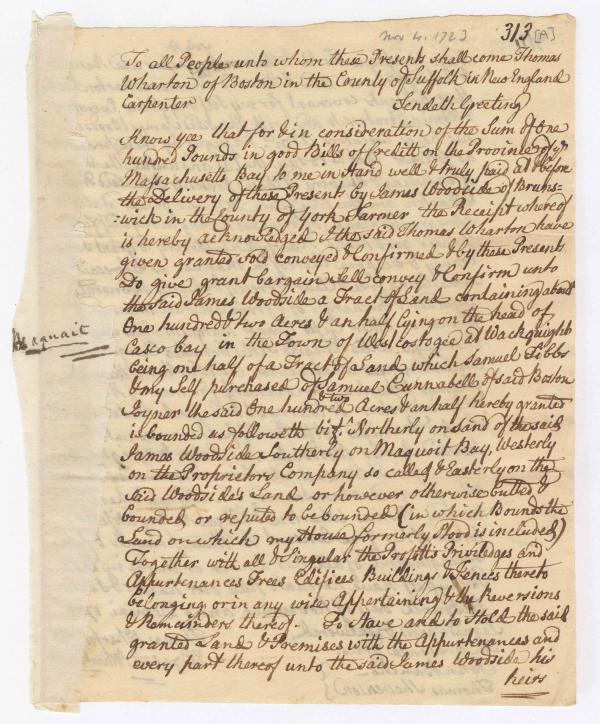 nov 4. 1723
313 [A]
To all People unto whom these Presents shall come Thomas
Wharton of Boston in the County of Suffolk in New England
Carpenter Sendeth Greeting
Know yee that for & in consideration of the Sum of One
hundred Pounds in good Bills of Creditt on the Province of ye
Massachusetts Bay to me in Hand well & truly paid at & before
the Delivery of these Presents by James Woodside of Bruns=
=wick in the County of York Farmer the Receipt whereof
is hereby acknowledged I the said Thomas Wharton have
given granted sold conveyed & Confirmed & by these Presents
Do give grant bargain Sell convey & Confirm unto
the said James Woodside a Tract of Land containing about
One hundred & two Acres & an half lying on the head of
Casco bay in the Town of Westcostogee at Wackquights
being one half of a Tract of Land which Samuel Tibbs
& my Self purchased of Samuel Cunnabell of said Boston
Joyner the said One hundred & two Acres & an half hereby granted
is bounded as followeth vizt. Northerly on Land of the said
James Woodside Southerly on Maquoit Bay, Westerly
on the Proprietors Company so called & Easterly on the
said Woodside's Land or however otherwise butted &
bounded or reputed to be bounded (in which Bounds the
Land on which my House formerly stood is included)
Together with all & Singular the Profitts Priviledges and
Appurtenances Trees Edifices Buildings & Fences thereto
belonging or in any wise Appertaining & the Reversions
& Remainders thereof. To Have and to Hold the said
granted Land & Premises with the Appurtenances and
every part thereof unto the said James Woodside his
heirs
Maquait